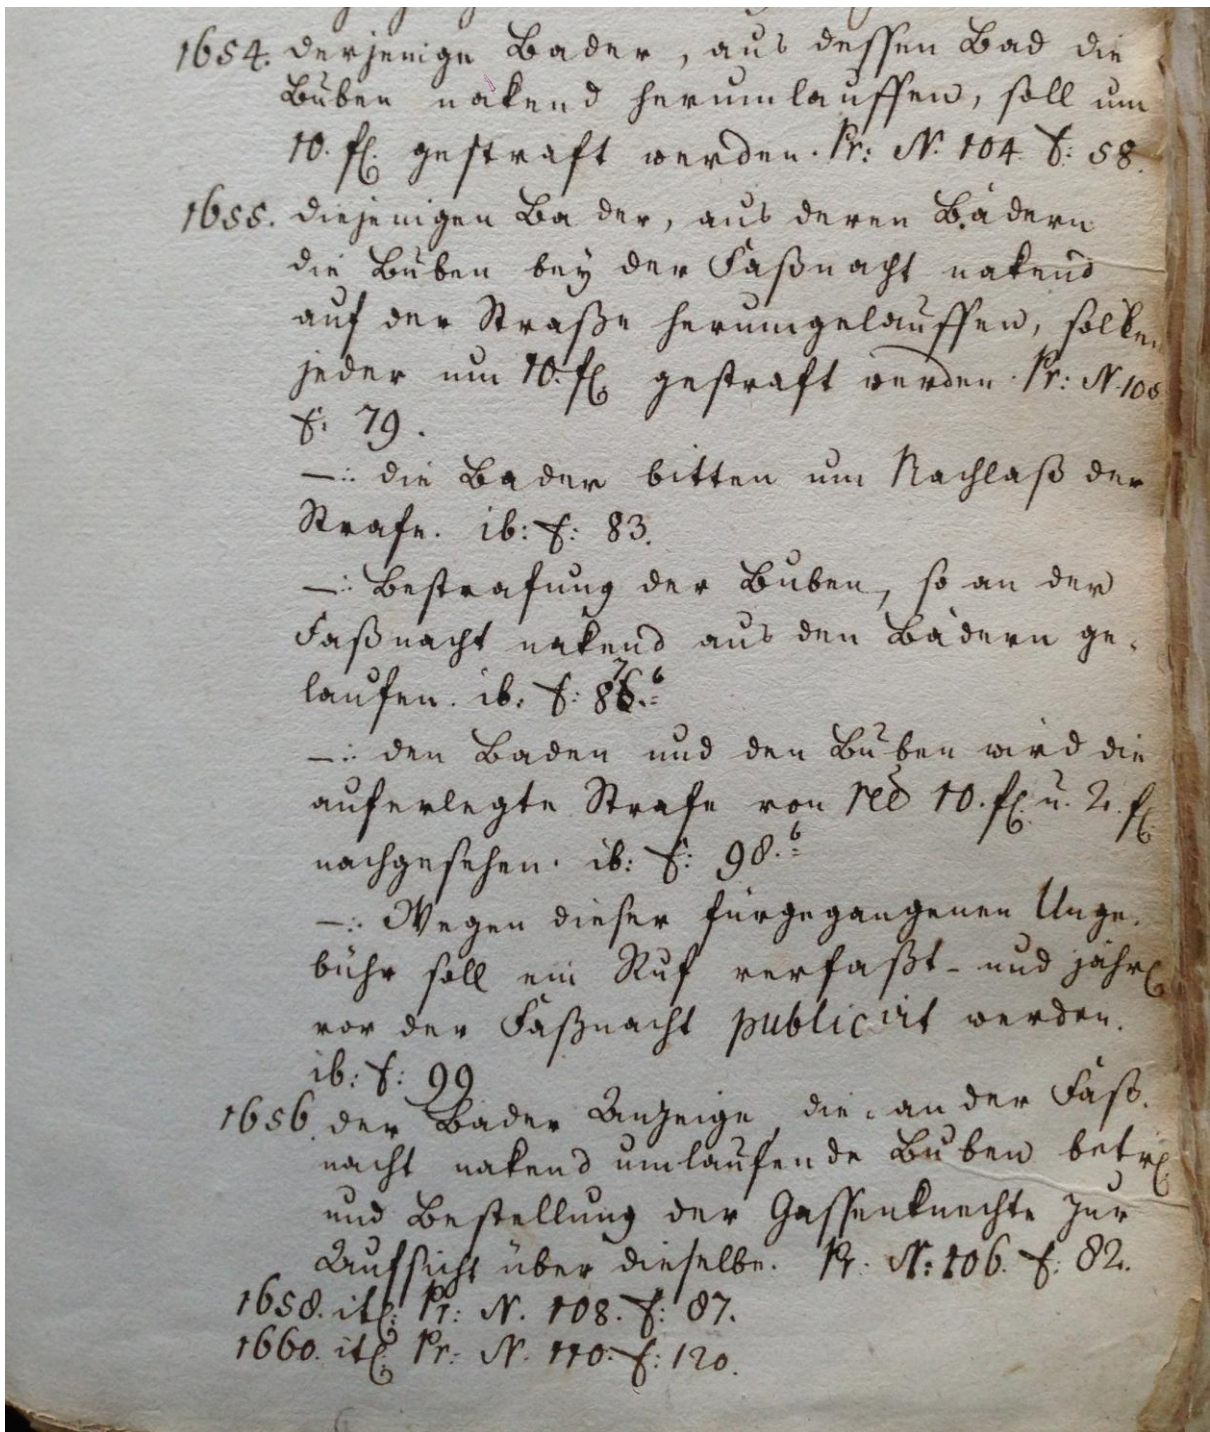 1654. derjenige Bader, aus dessen Bad die
Buben nakend herumlauffen, soll um
10. fl. gestraft werden. Pr: N. 104 f: 58.
1655. diejenigen Bader, aus deren Bädern
die Buben bey der Faßnacht nakend
auf der Straße herumgelauffen, sollen
jeder um 10. fl. gestraft werden. Pr: N. 105
f: 79.
—: die Bader bitten um Nachlaß der
Strafe. ib: f: 83.
—: Bestrafung der Buben, so an der
Faßnacht nakend aus den Bädern ge-
laufen. ib: f: 87.b
—: den Baden und den Buben wird die
auferlegte Strafe von 10. fl. u. 2. fl.
nachgesehen. ib: f: 98.b
—: Wegen dieser fürgegangenen Unge-
bühr soll ein Ruf verfaßt- und jährl
vor der Faßnacht publicirt werden.
ib: f: 99
1656. der Bader Anzeige, die an der Faß-
nacht nakend umlaufende Buben betrl
und Bestellung der Gassenknechte zur
Aufsicht über dieselbe. Pr. N: 106. f: 82.
1658. itl: Pr: N. 108. f: 87.
1660. itl: Pr: N. 110. f: 120.